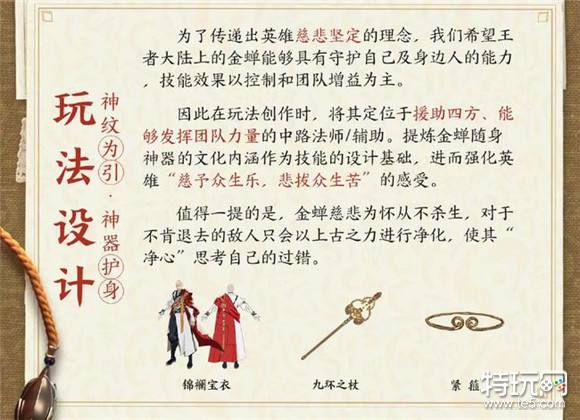 玩法设计
神纹为引·神器护身
为了传递出英雄慈悲坚定的理念，我们希望王
者大陆上的金蝉能够具有守护自己及身边人的能力
，技能效果以控制和团队增益为主。
因此在玩法创作时，将其定位于援助四方、能
够发挥团队力量的中路法师/辅助。提炼金蝉随身
神器的文化内涵作为技能的设计基础，进而强化英
雄“慈予众生乐，悲拔众生苦”的感受。
值得一提的是，金蝉慈悲为怀从不杀生，对于
不肯退去的敌人只会以上古之力进行净化，使其“
净心”思考自己的过错。
锦襕宝衣
九环之杖
紧箍
特玩网
www.te5.com